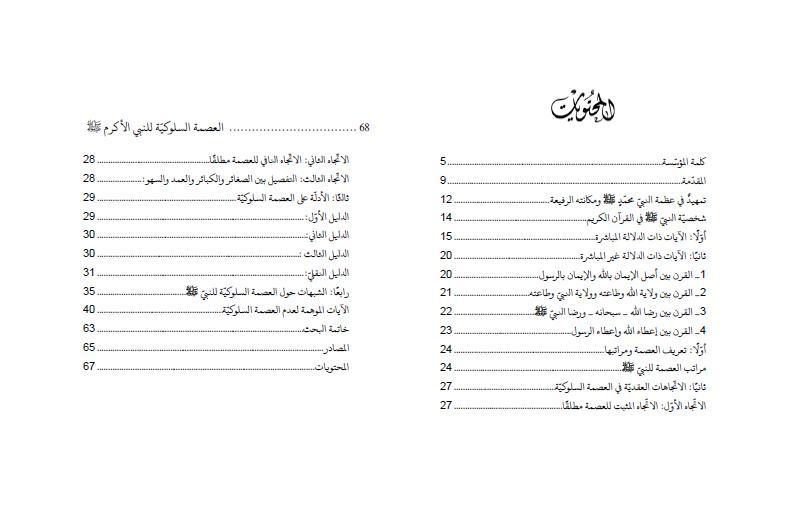 المحتويات
كلمة المؤسّسة 5
المقدّمة 9
تمهيدٌ في عظمة النبيّ محمّدٍ ﷺ ومكانته الرفيعة 12
شخصيّة النبيّ ﷺ في القرآن الكريم 14
أوّلًا: الآيات ذات الدلالة المباشرة 15
ثانيًا: الآيات ذات الدلالة غير المباشرة 20
1ـ القرن بين أصل الإيمان بالله والإيمان بالرسول 20
2ـ القرن بين ولاية الله وطاعته وولاية النبيّ وطاعته 21
3ـ القرن بين رضا الله ـ سبحانه ـ ورضا النبيّ ﷺ 22
4ـ القرن بين إعطاء الله وإعطاء الرسول 23
أوّلًا: تعريف العصمة ومراتبها 24
مراتب العصمة للنبيّ ﷺ 24
ثانيًا: الاتّجاهات العقديّة في العصمة السلوكيّة 27
الاتّجاه الأوّل: الاتّجاه المثبت للعصمة مطلقًا 27
68 ................................. العصمة السلوكيّة للنبي الأكرم ﷺ
الاتّجاه الثاني: الاتّجاه النافي للعصمة مطلقًا 28
الاتّجاه الثالث: التفصيل بين الصغائر والكبائر والعمد والسهو: 28
ثالثًا: الأدلّة على العصمة السلوكيّة 29
الدليل الأوّل: 29
الدليل الثاني: 30
الدليل الثالث : 30
الدليل النقليّ: 31
رابعًا: الشبهات حول العصمة السلوكيّة للنبيّ ﷺ 35
الآيات الموهمة لعدم العصمة السلوكيّة 40
خاتمة البحث 63
المصادر 65
المحتويات 67